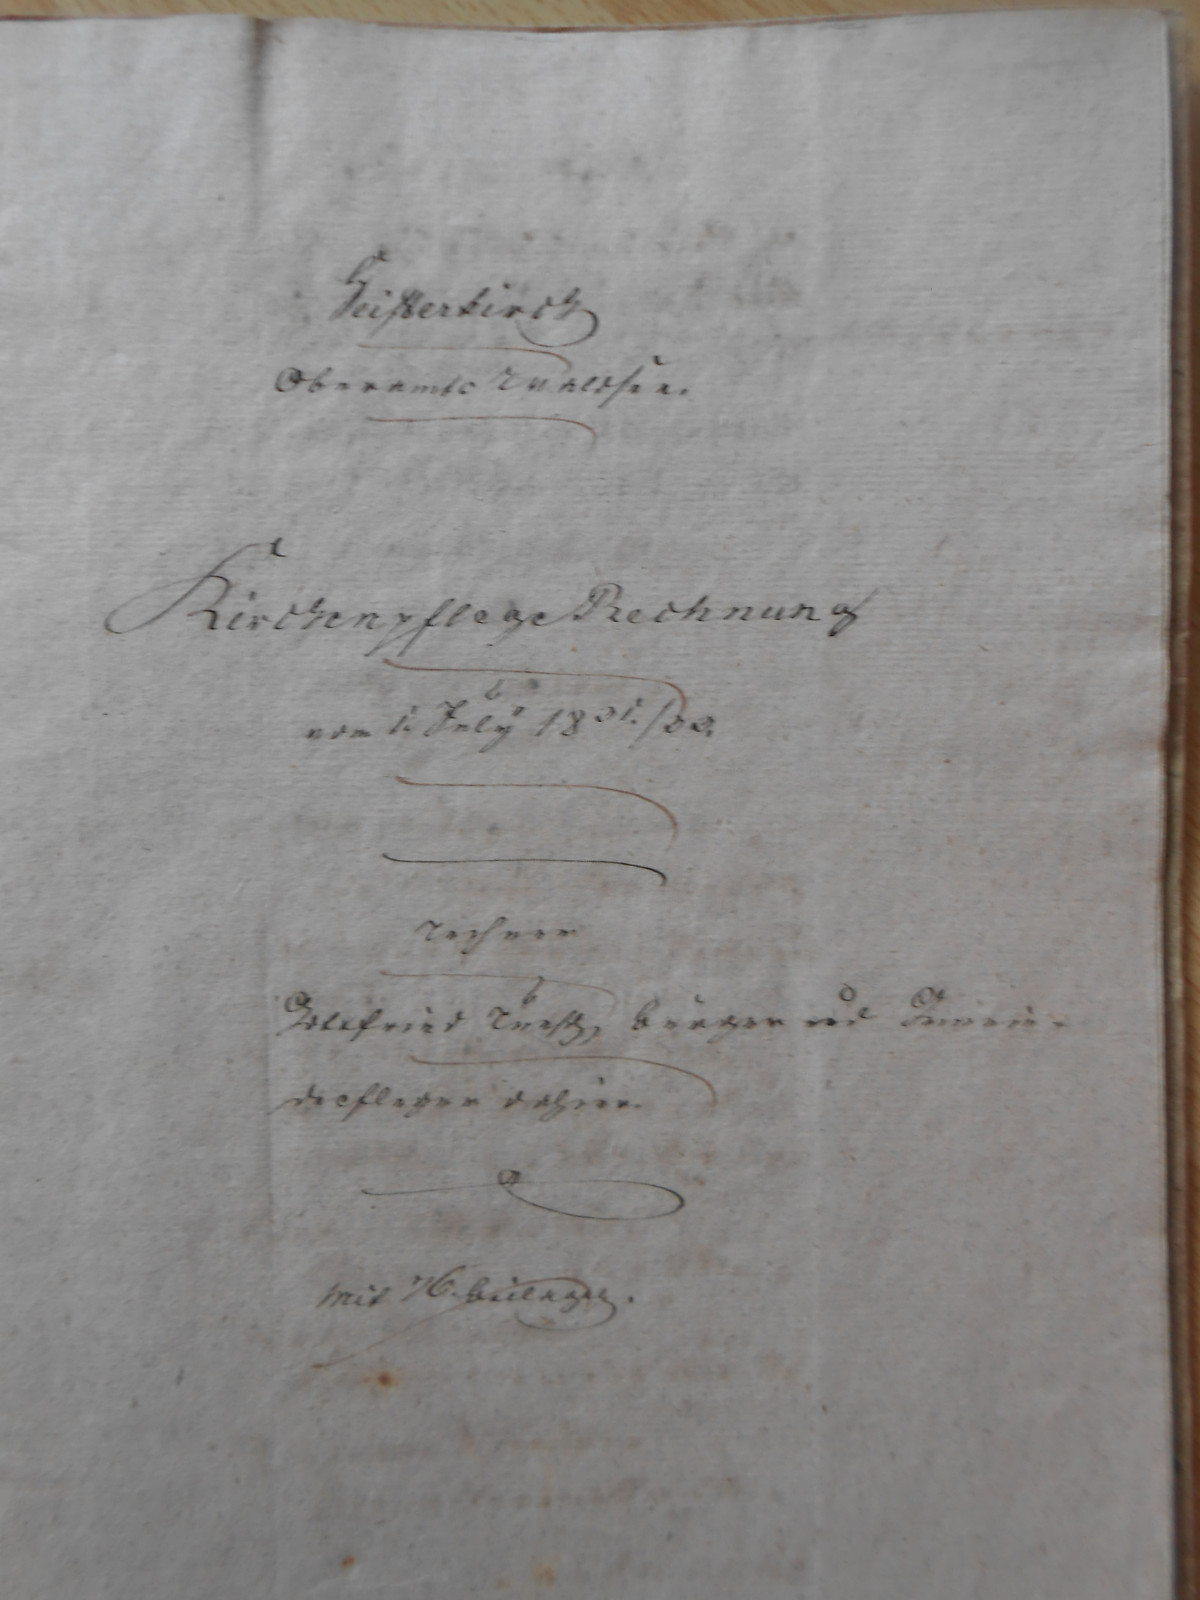 Heisterkirch
Oberamts Waldsee.
Kirchenpflege Rechnung
vom 1. July 18
Rechner
Gottfried Bürger und Gemein-
depfleger dahier.
Mit 76. Beilagen.